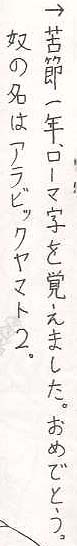 →苦節一年、ローマ字を覚えました。おめでとう。
奴の名はアラビックヤマト2。